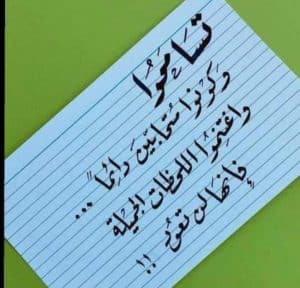 تسامحوا
وكونوا متحابين دائماً ...
واغتنموا اللحظات الجميلة
فإنها لن تعود !!